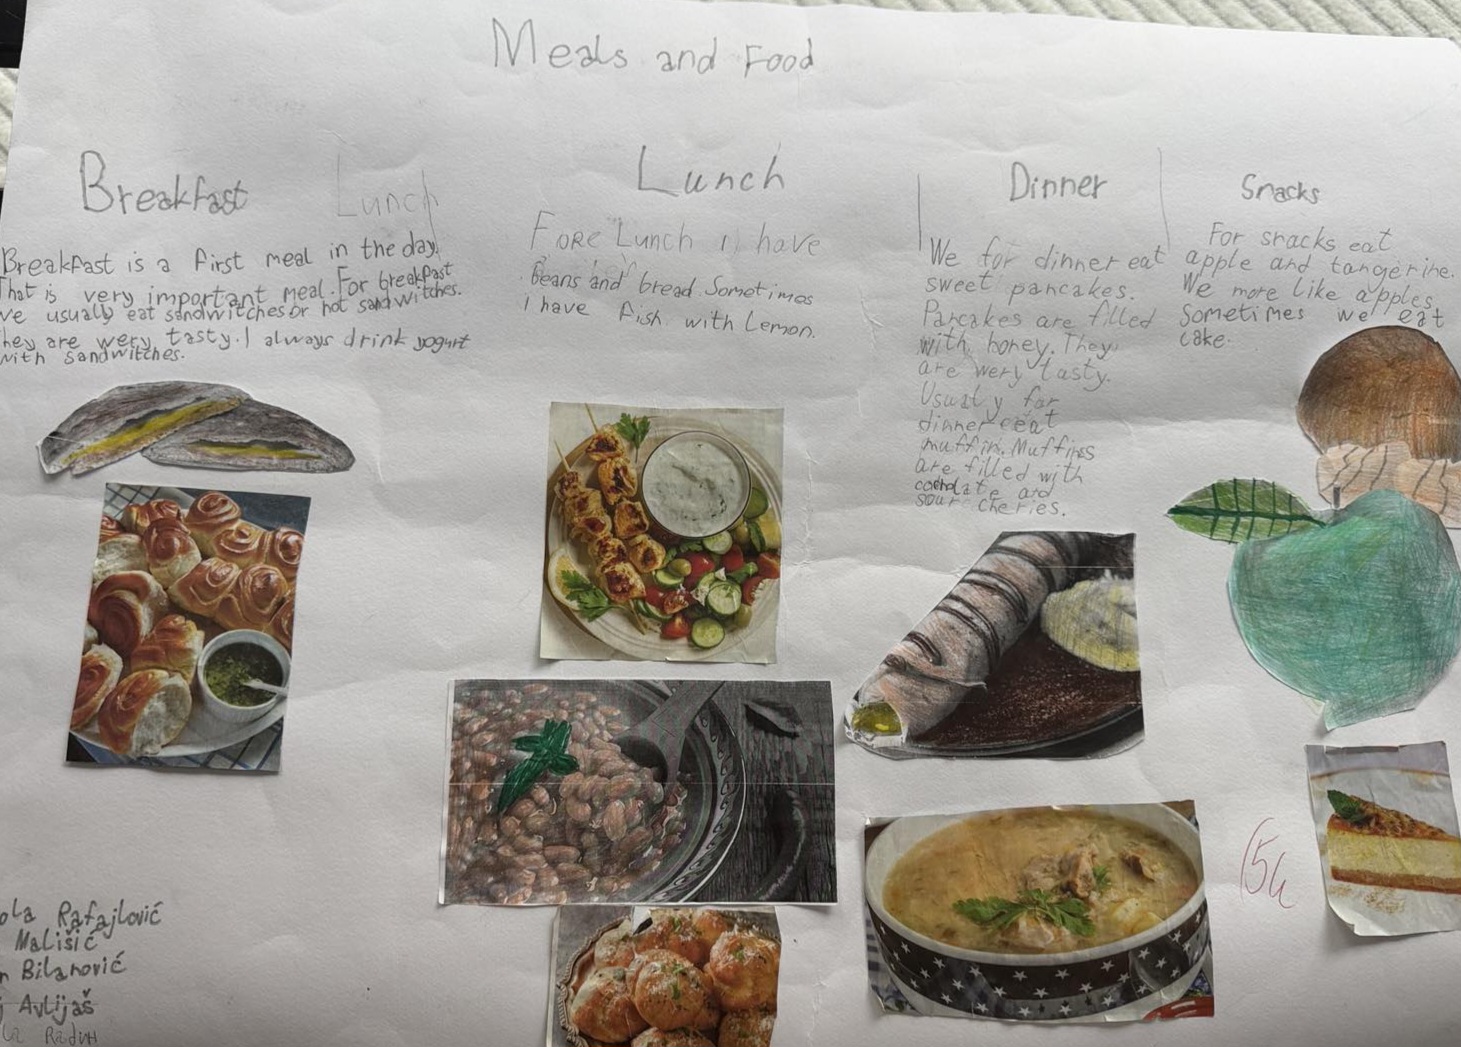 Meals and Food
Breakfast
Lunch
Breakfast is a first meal in the day.
That is very important meal. For breakfast
we usually eat sandwitches or hot sandwitches.
They are wery tasty. I always drink yogurt
with sandwitches.
Lunch
Fore Lunch I have
Beans and bread. Sometimes
I have fish with Lemon.
Dinner
We for dinner eat
sweet pancakes.
Pancakes are filled
with honey. They
are wery tasty.
Usualy for
dinner eat
muffin. Muffins
are filled with
and
sour cheries.
Snacks
For snacks eat
apple and tangerine.
We more like apples.
Sometimes we eat
cake.
ola Rafajlović
Mališić
n Bilanović
j Avlijaš
Radin